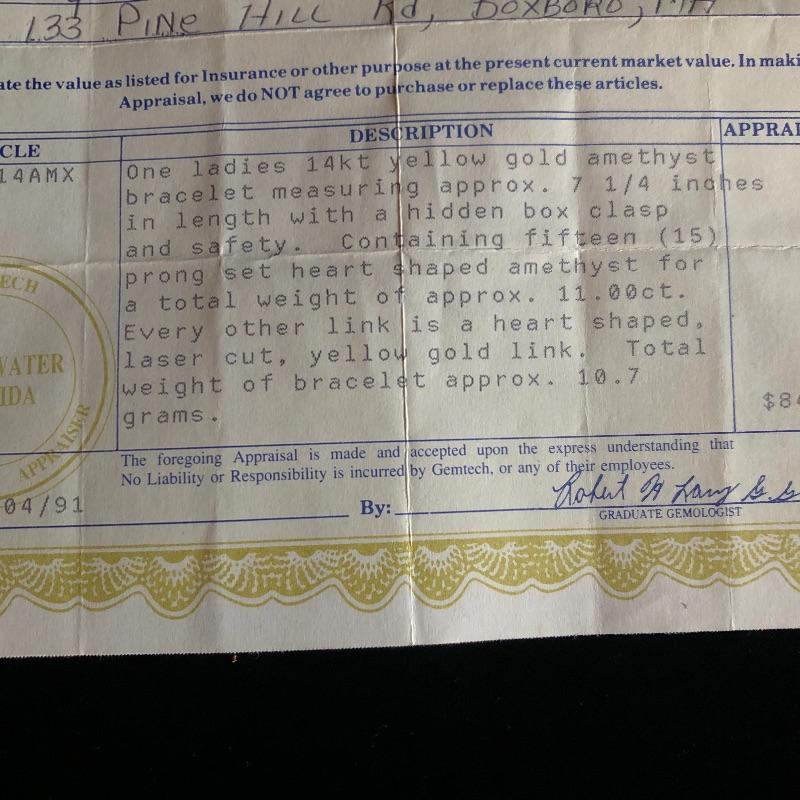 133 PINE HILL Rd, BOXBORO, MA
ate the value as listed for Insurance or other purpose at the present current market value. In maki
Appraisal, we do NOT agree to purchase or replace these articles.
CLE DESCRIPTION APPRAI
14AMX
One ladies 14kt yellow gold amethyst
bracelet measuring approx. 7 1/4 inches
in length with a hidden box clasp
and safety. Containing fifteen (15)
prong set heart shaped amethyst for
a total weight of approx. 11.00ct.
Every other link is a heart shaped,
laser cut, yellow gold link. Total
weight of bracelet approx. 10.7
grams.
$84
ECH
WATER
IDA
APPRAISER
The foregoing Appraisal is made and accepted upon the express understanding that
No Liability or Responsibility is incurred by Gemtech, or any of their employees.
04/91 By: Robert
GRADUATE GEMOLOGIST